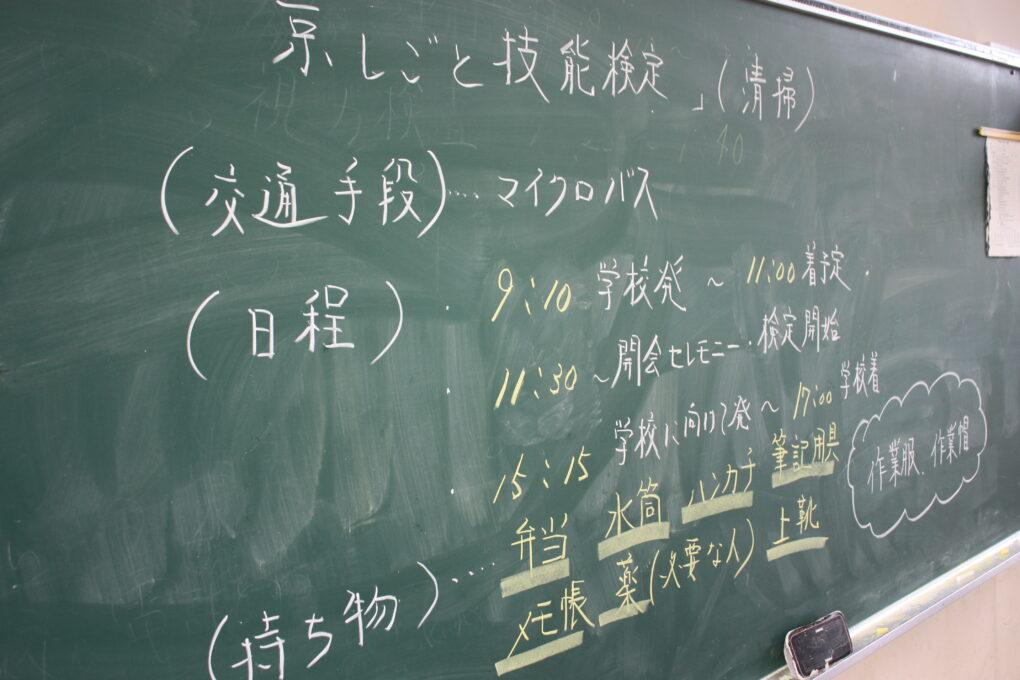 京しごと技能検定」(清掃)
(交通手段)‥‥マイクロバス
(日程)・9:10 学校発 ~ 11:00着予定
・11:30~開会セレモニー・検定開始
・15:15 学校に向けて発~17:00学校着
(持ち物)‥‥弁当 水筒 ハンカチ 筆記用具
メモ帳 薬(必要な人) 上靴
作業服、作業帽